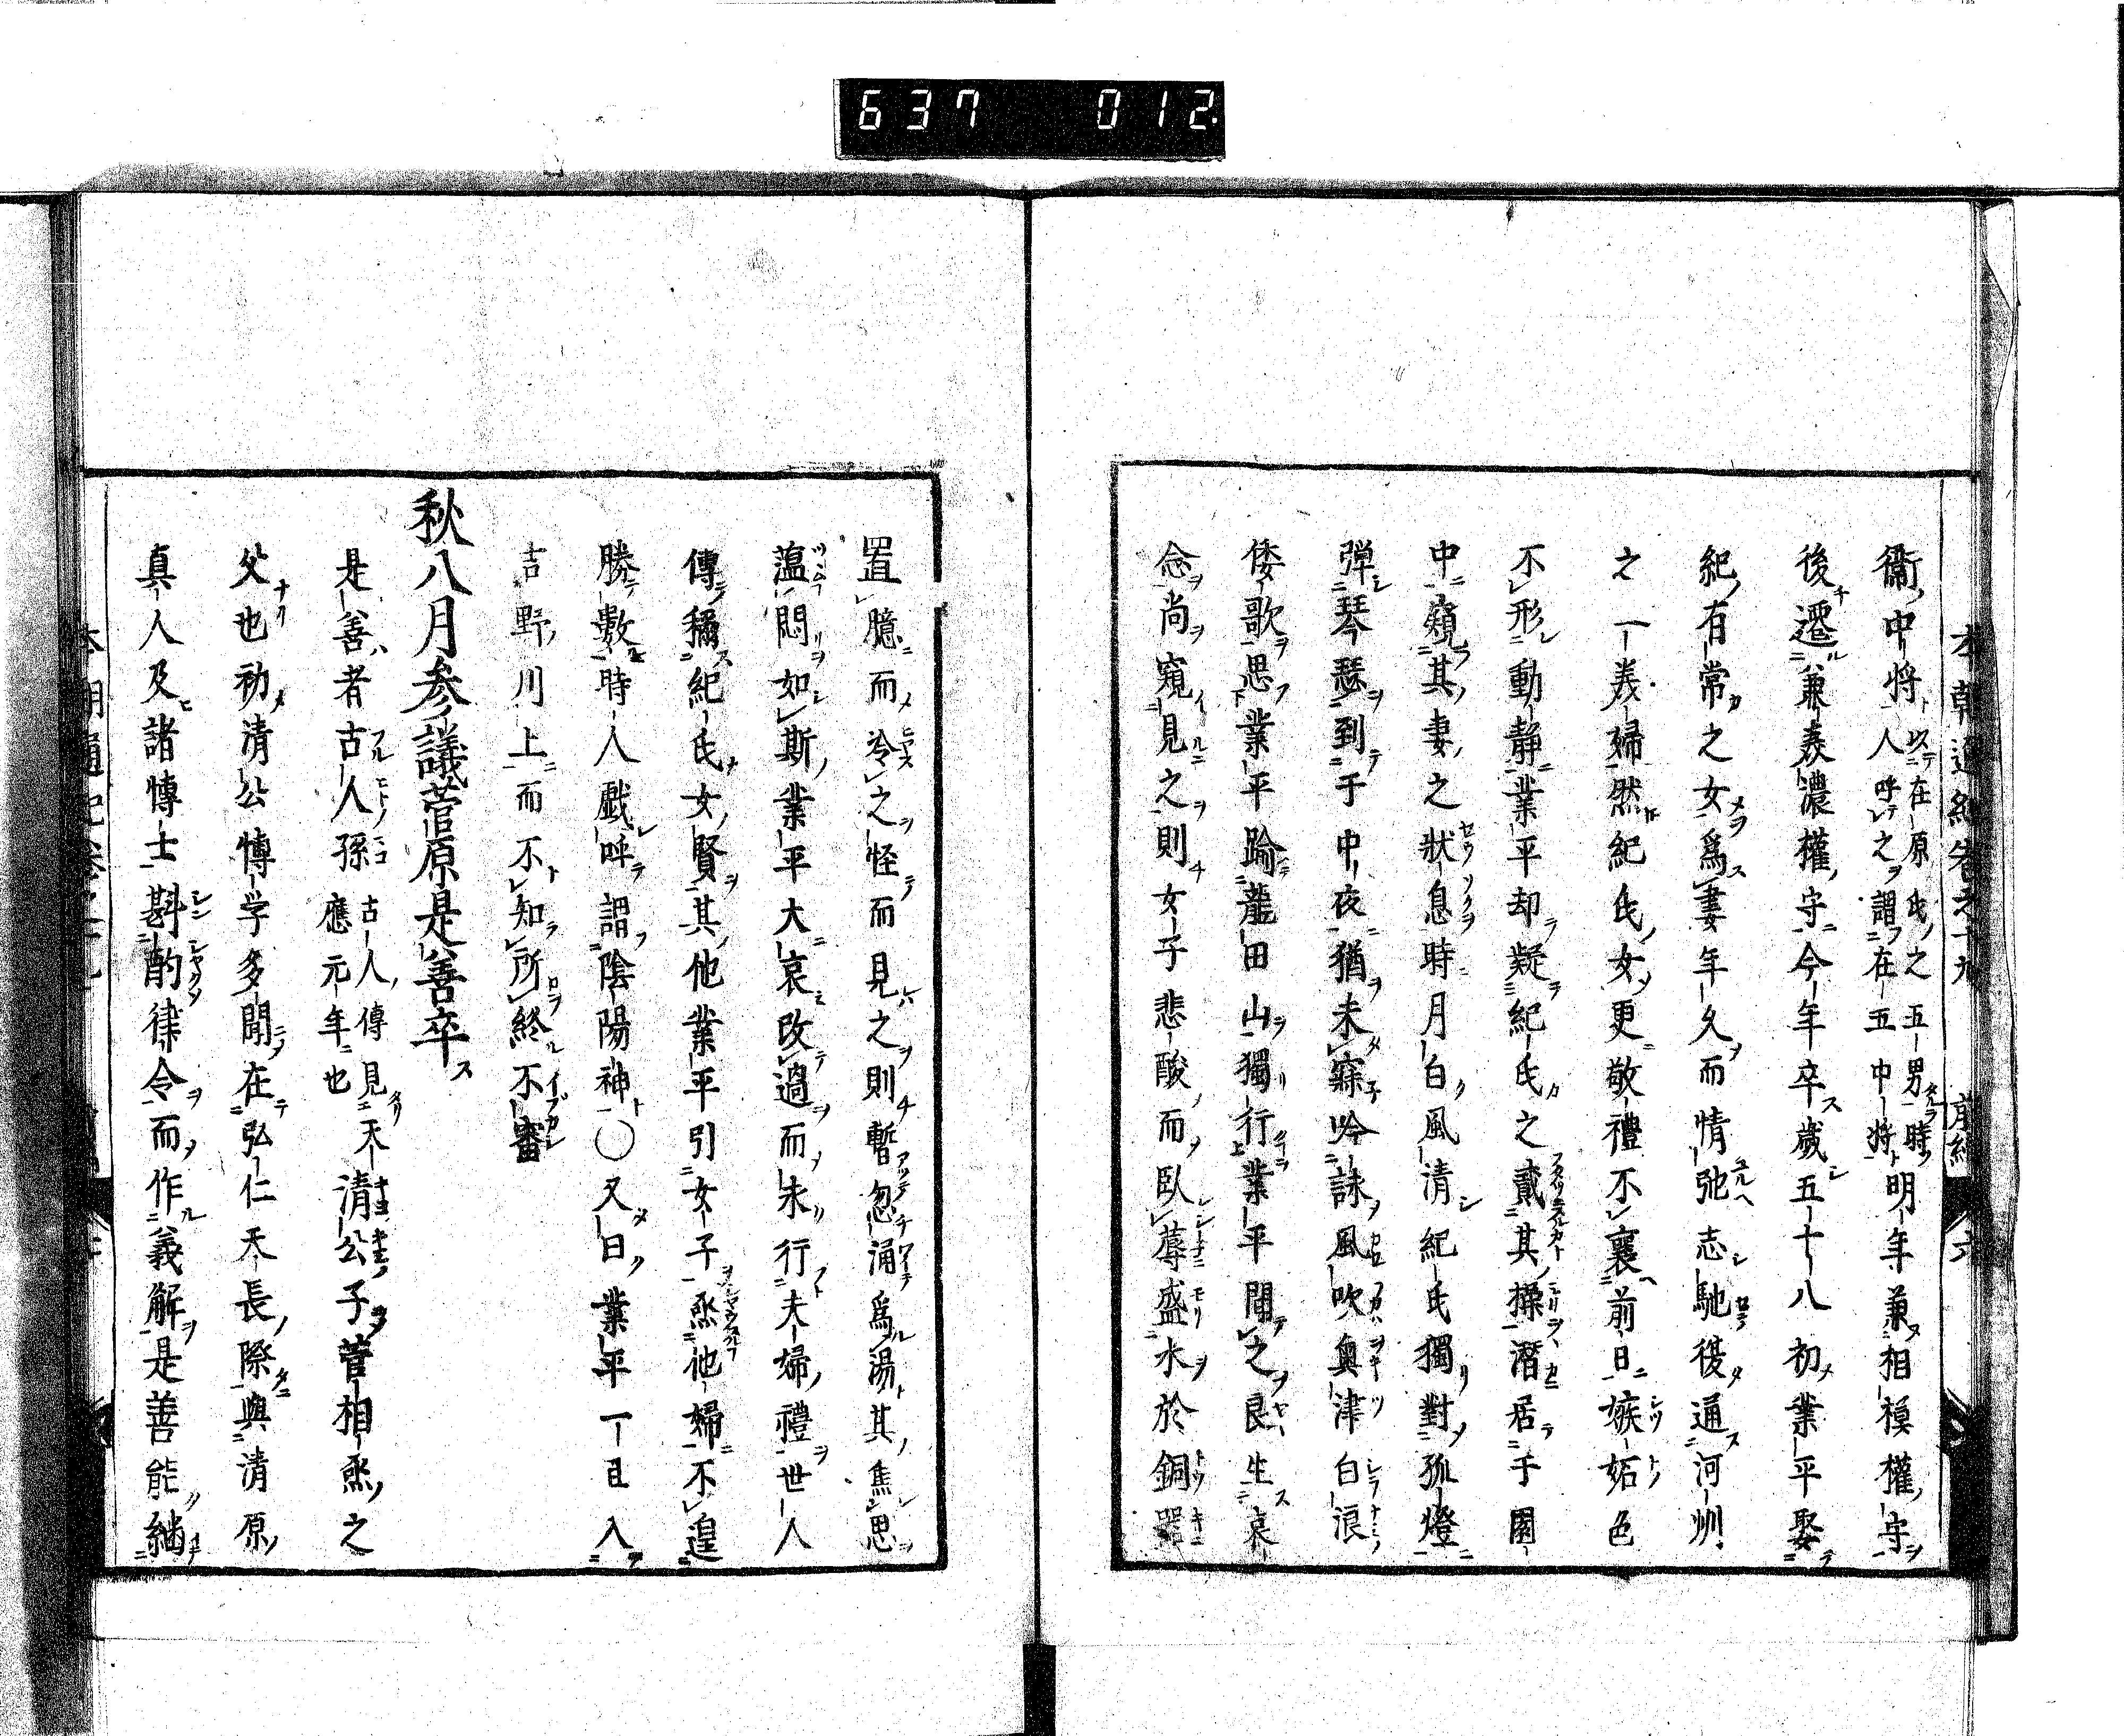 637 012
本朝通紀卷之十九 前紀 六
衞中將人以在原氏之五男時呼之謂在五中將明年兼相模權守
後遷兼美濃權守今年卒歲五十八初業平娶
紀有常之女爲妻年久而情弛志馳復通河州
之一美婦然紀氏女更敬禮不襄前日嫉妬色
不形動靜業平却疑紀氏之貳其操潛居于園
中窺其妻之狀息時月白風清紀氏獨對孤燈
彈琴瑟到于中夜猶未寐吟詠風吹奧津白浪
倭歌思業平踰龍田山獨行業平聞之良生哀
念尚窺見之則女子悲酸而臥蓐盛水於銅器
置臆而冷之怪而見之則暫忽涌爲湯其焦思
薀悶如斯業平大哀改過而未行夫婦禮世人
傳稱紀氏女賢其他業平引女子烝他婦不遑
勝數時人戯呼謂陰陽神○又曰業平一旦入
吉野川上而不知所終不審
秋八月参議菅原是善卒
是善者古人孫古人傳見天應元年也清公子菅相烝之
父也初清公博学多聞在弘仁天長際與清原
真人及諸博士斟酌律令而作義解是善能